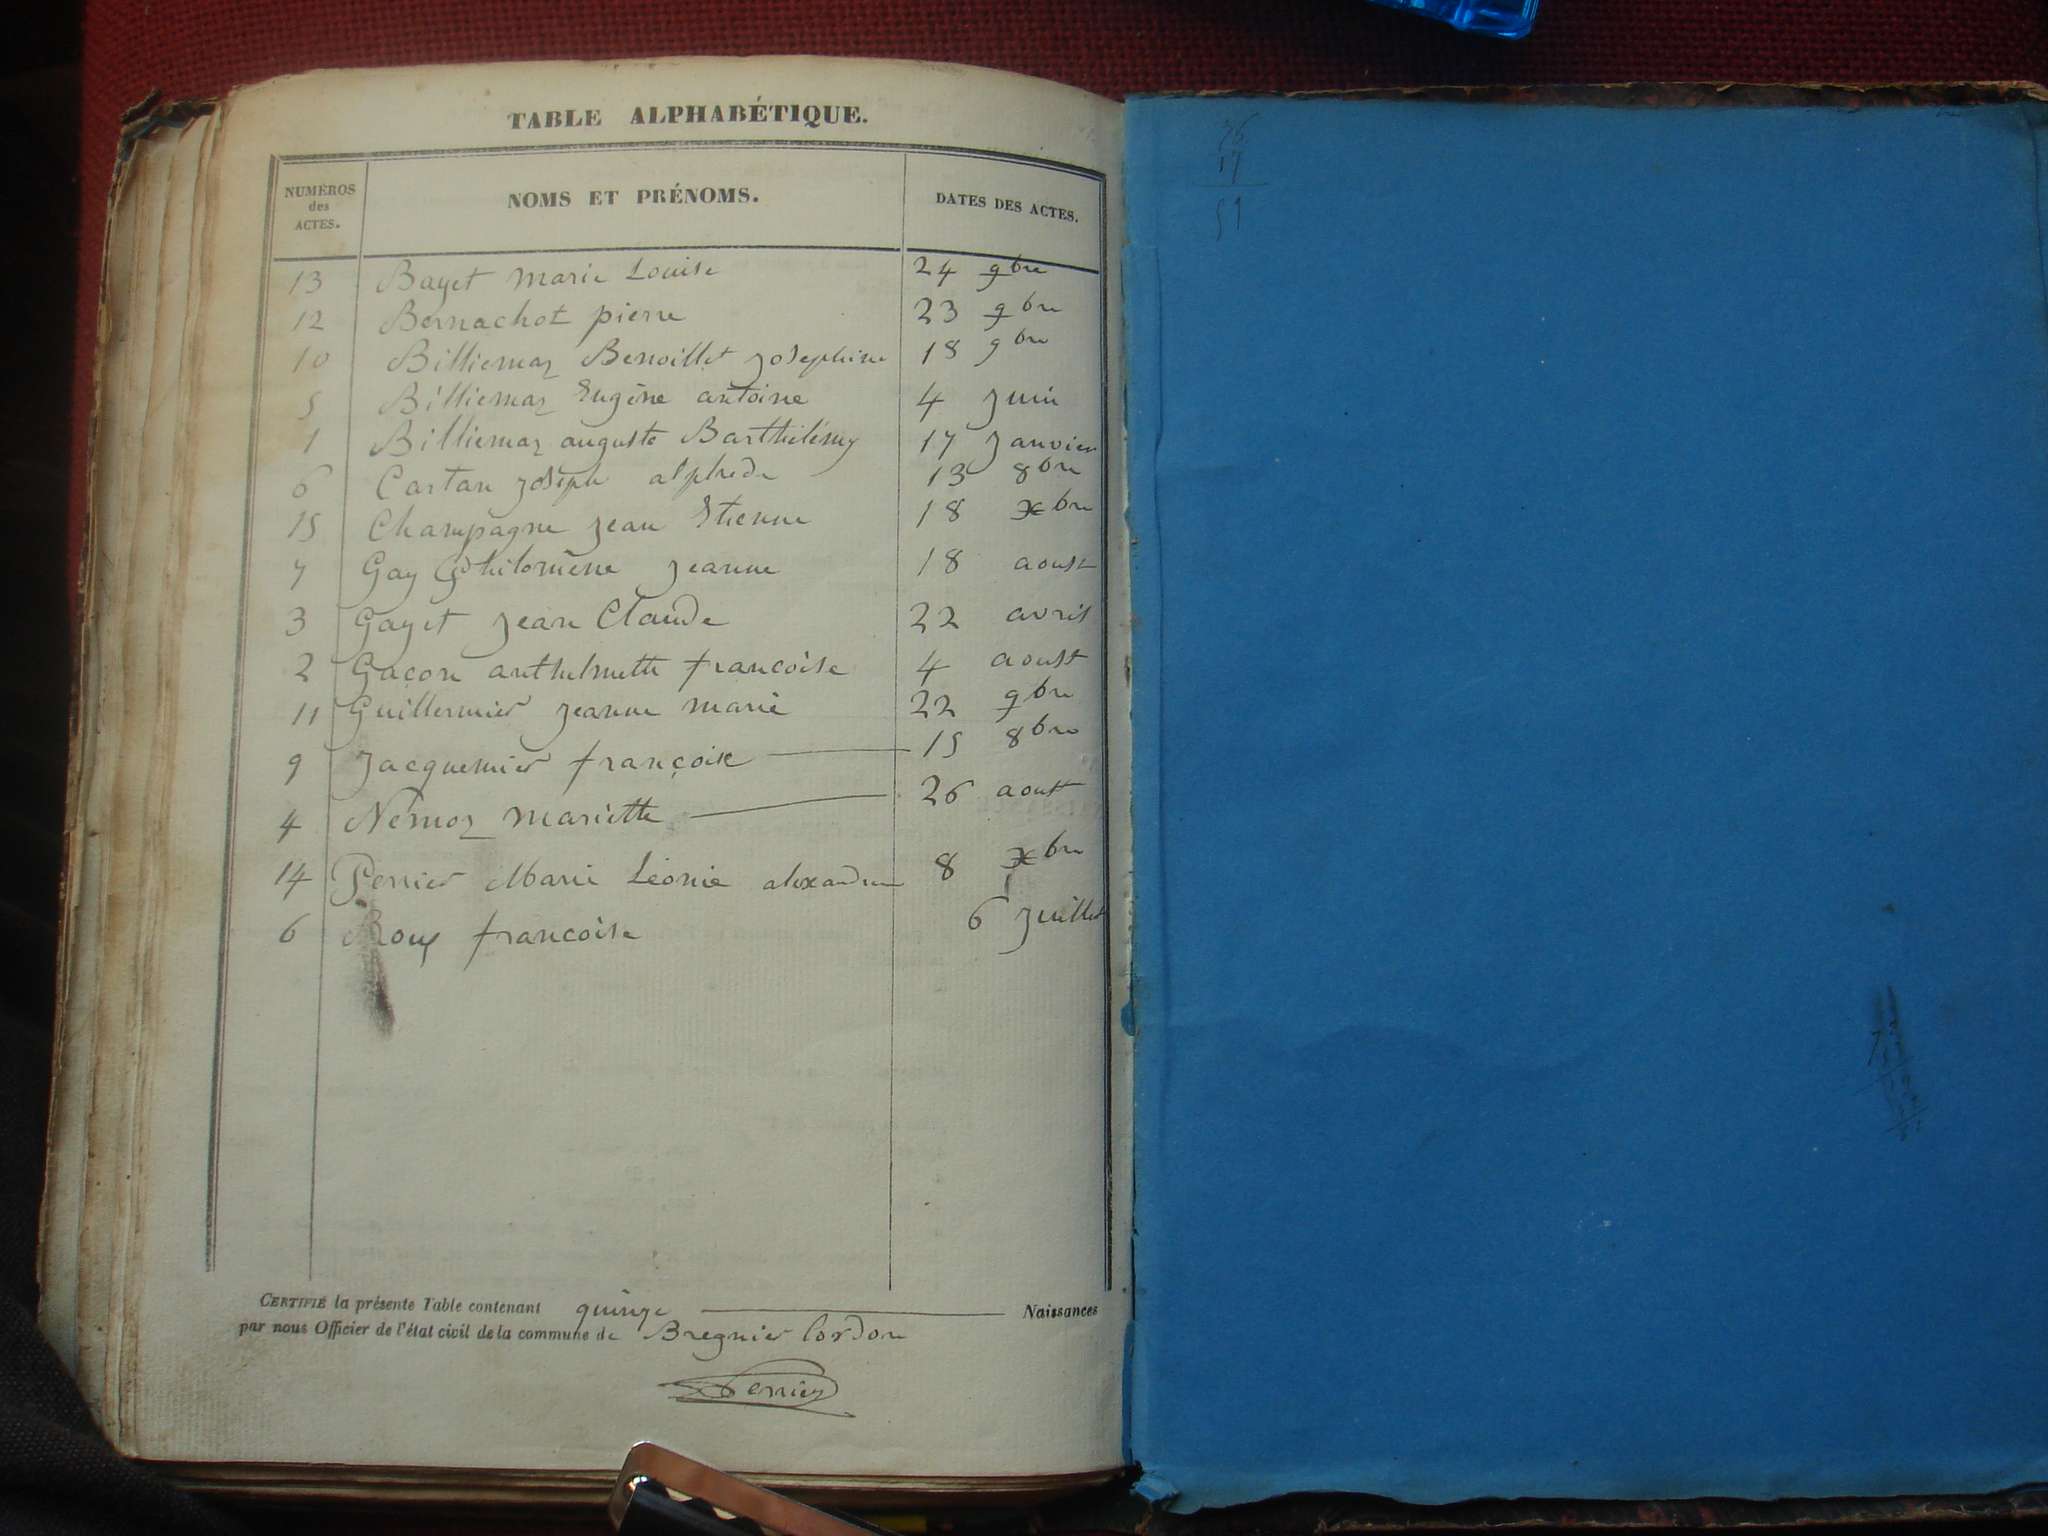 TABLE ALPHABÉTIQUE.
NUMÉROS des ACTES. NOMS ET PRÉNOMS. DATES DES ACTES.
13 Bayet Marie Louise 24 9bre
12 Bernachot pierre 23 9bre
10 Billiemaz Benoitte Josephine 18 9bre
5 Billiemaz Eugène antoine 4 Juin
1 Billiemaz auguste Barthélémy 17 Janvier
6 Cartan Joseph alphrede 13 8bre
15 Champagne Jean Etienne 18 xbre
7 Gay Philomène Jeanne 18 aoust
3 Gayet Jean Claude 22 avril
2 Gaçon anthelmette francoise 4 aoust
11 Guillermier Jeanne marie 22 9bre
9 Jacquemier françoise 15 8bre
4 Némoz Mariette 26 aout
14 Perrier Marie Léonie alexandrine 8 xbre
6 Roux francoise 6 Juillet
CERTIFIÉ la présente Table contenant quinze Naissances
par nous Officier de l'état civil de la commune de Bregnier Cordon
Perrier
36
17
51